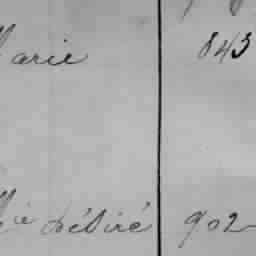 Marie 843
Mie Désiré 902